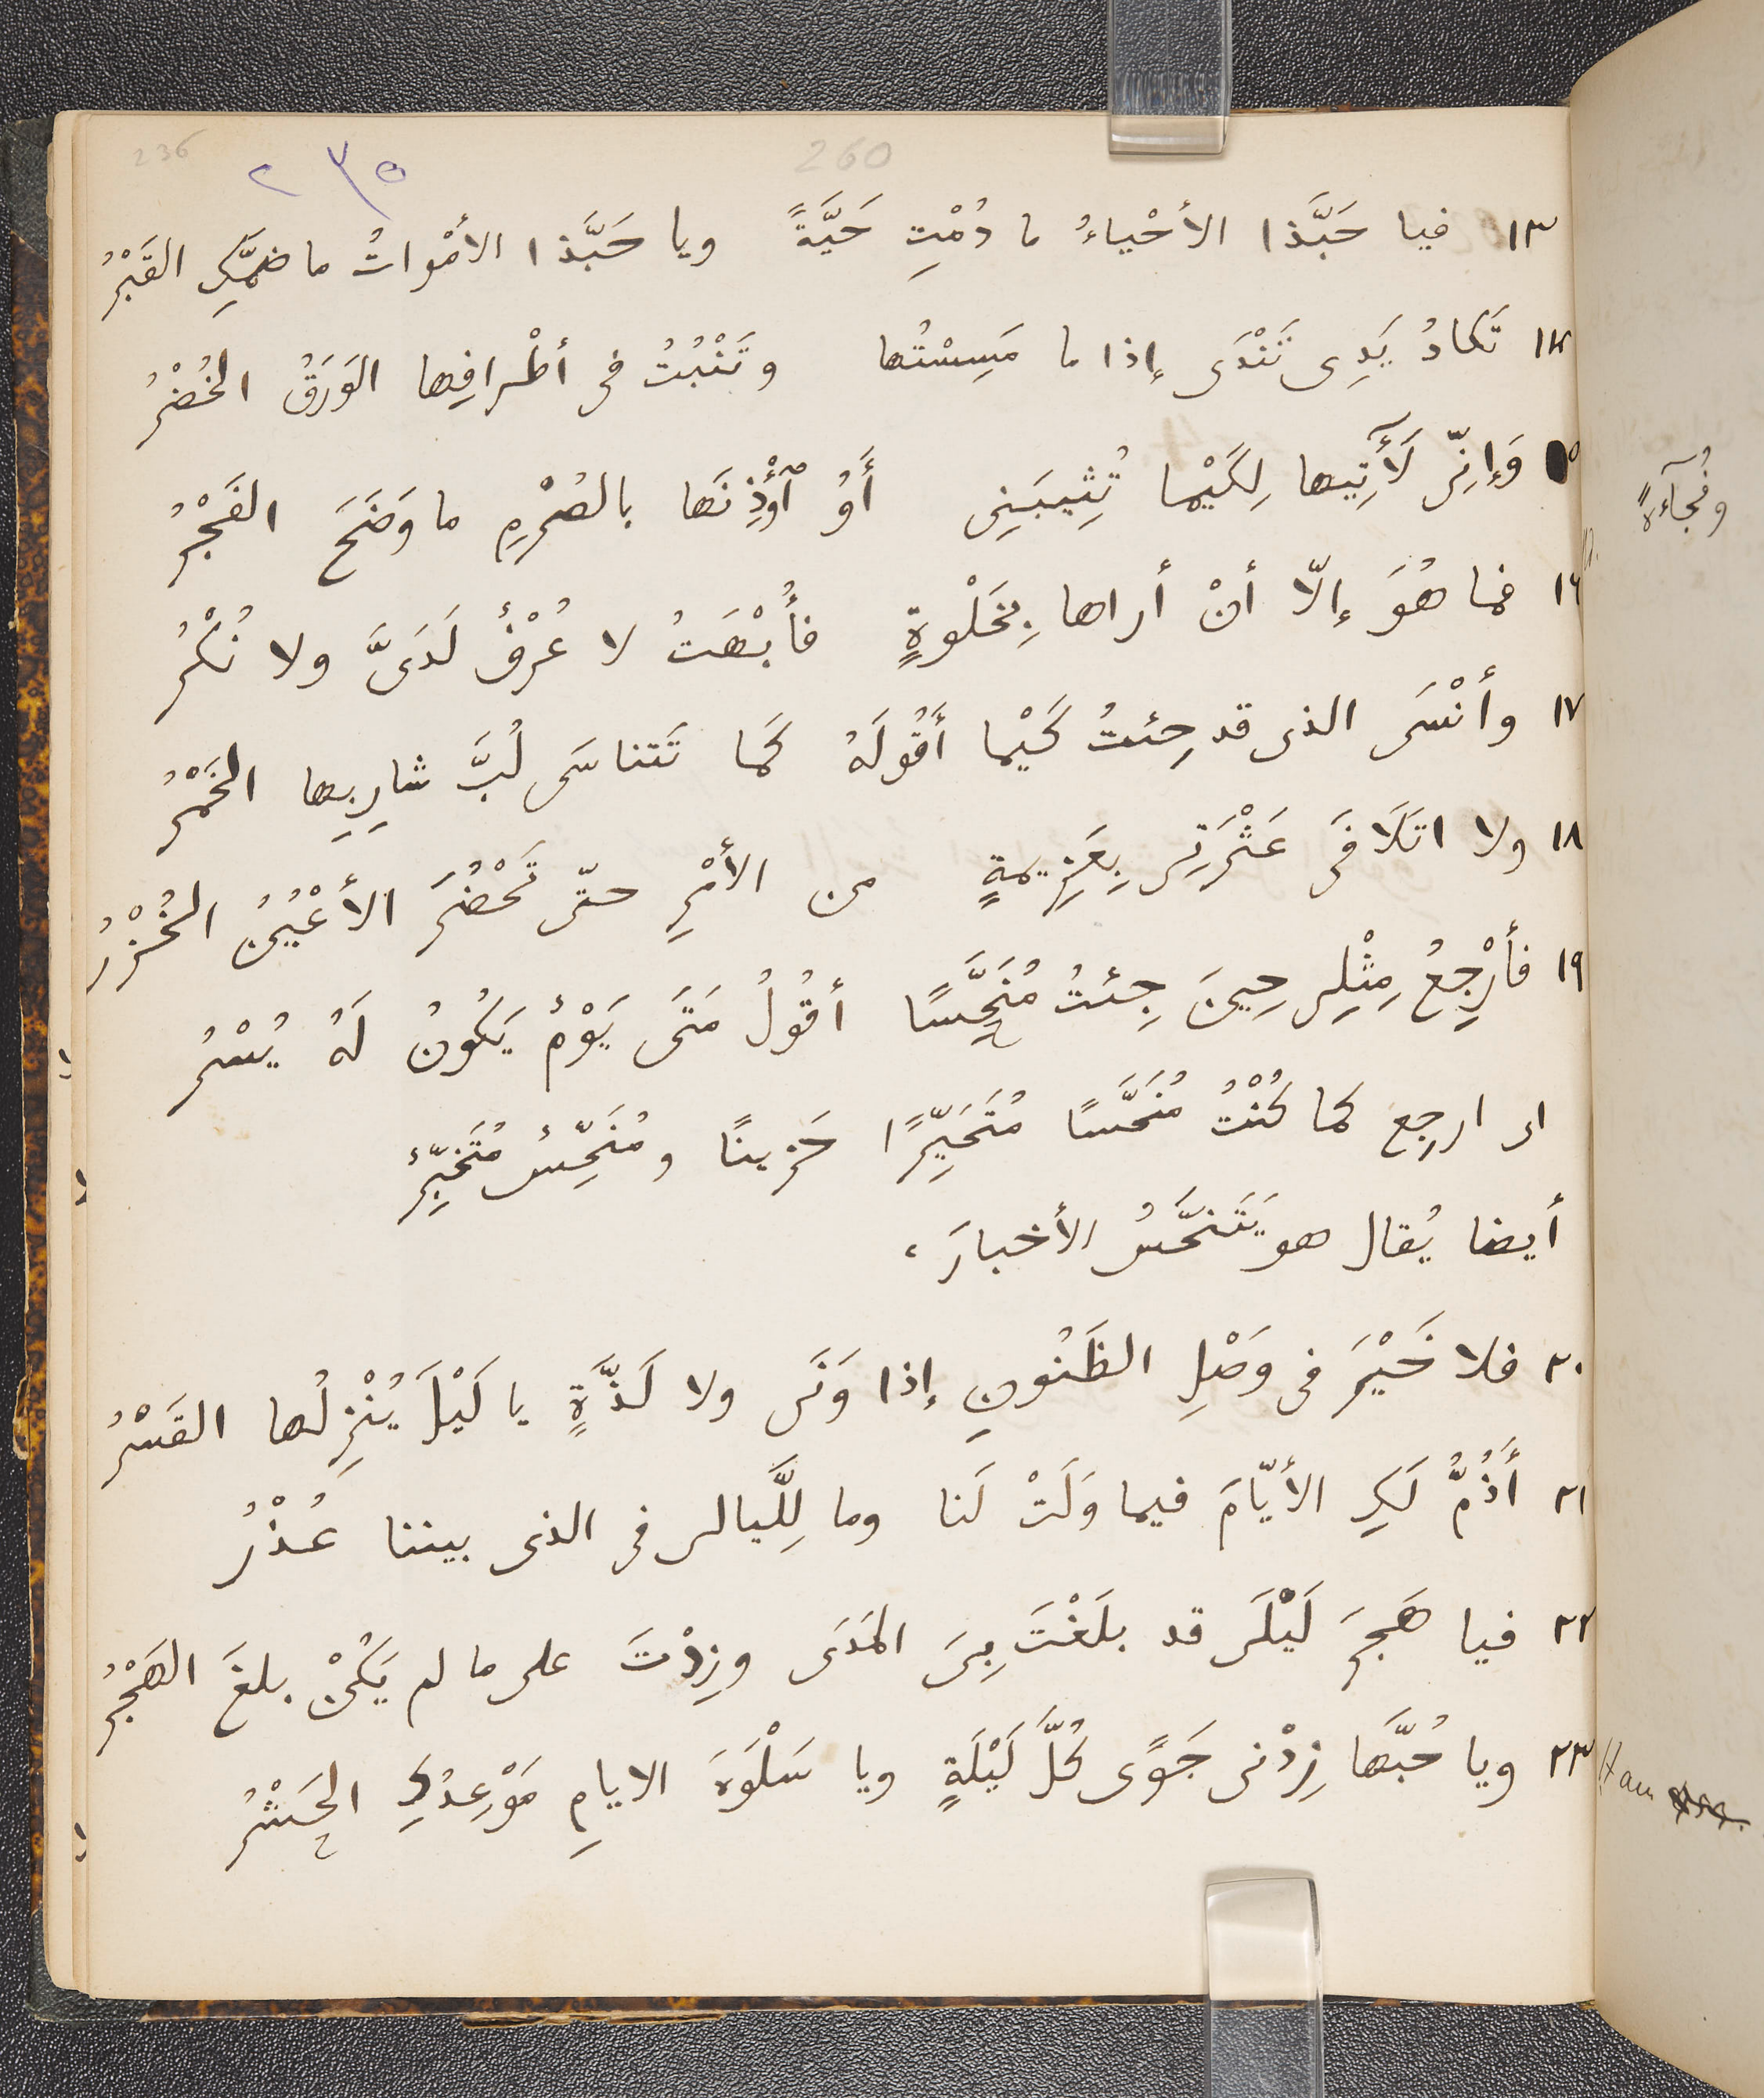 236
٢٣٥
260
١٣ فيا حَبَّذا الأحْياءُ ما دُمْتِ حَيَّةً ويا حَبَّذا الأمْواتُ ما ضمَّكِ القَبْرُ
١٤ تَكادُ يَدِى تَنْدَى إذا ما مَسِسْتُها وتَنْبُتُ فى أطْرافِها الوَرَقُ الخُضْرُ
١٥ وَإنِّى لَأٓتِيها لِكَيْما تُثِيبَنِى أَوُ ٱؤْذِنَها بالصُرْمِ ما وَضَحَ الفَجْرُ
وفُجآءةً
١٦ فما هُوَ إلّا أنْ أراها بِخَلْوةٍ فأُبْهَتُ لا عُرْفٌ لَدَىَّ ولا نُكْرُ
١٧ وأنْسَى الذى قد جِئتُ كَيْما أَقُولَهُ كَما تَتناسَى لُبَّ شارِبِها الخَمْرُ
١٨ ولا اتَلَافَى عَثْرَتِى بِعَزِيمةٍ من الأمْرِ حتّى تَحْضُرَ الأعْيُنُ الخُزْرُ
١٩ فأرْجِعُ مِثْلِى حِينَ جِئتُ مُنَحَّسًا أقُولُ مَتَى يَوْمٌ يَكُونُ لَهُ يُسْرُ
اى ارجع كما كُنْتُ مُنَحَّسًا مُتَحَيِّرًا حَزينًا ومُنَحِّسٌ مُتَخَبِّرٌ
أيضا يُقال هو يَتَنَحَّسُ الأخبارَ ،
٢٠ فلا خَيْرَ فى وَصْلِ الظَنُونِ إذا وَنَى ولا لَذَّةٍ يا لَيْلَ يُنْزِلُها القَسْرُ
٢١ أَذُمُّ لَكِ الأيّامَ فيما وَلَتْ لَنا وما لِلَّيالى فى الذى بيننا عُذْرُ
٢٢ فيا هَجرَ لَيْلَى قد بلَغْتَ بِىَ المَدَى وزِدْتَ على ما لم يَكُنْ بلغَ الهَجْرُ
٢٣ ويا حُبَّها زِدْنى جَوًى كُلَّ لَيْلَةٍ ويا سَلْوَةَ الايامِ مَوْعِدُكِ الحَشْرُ
Ham